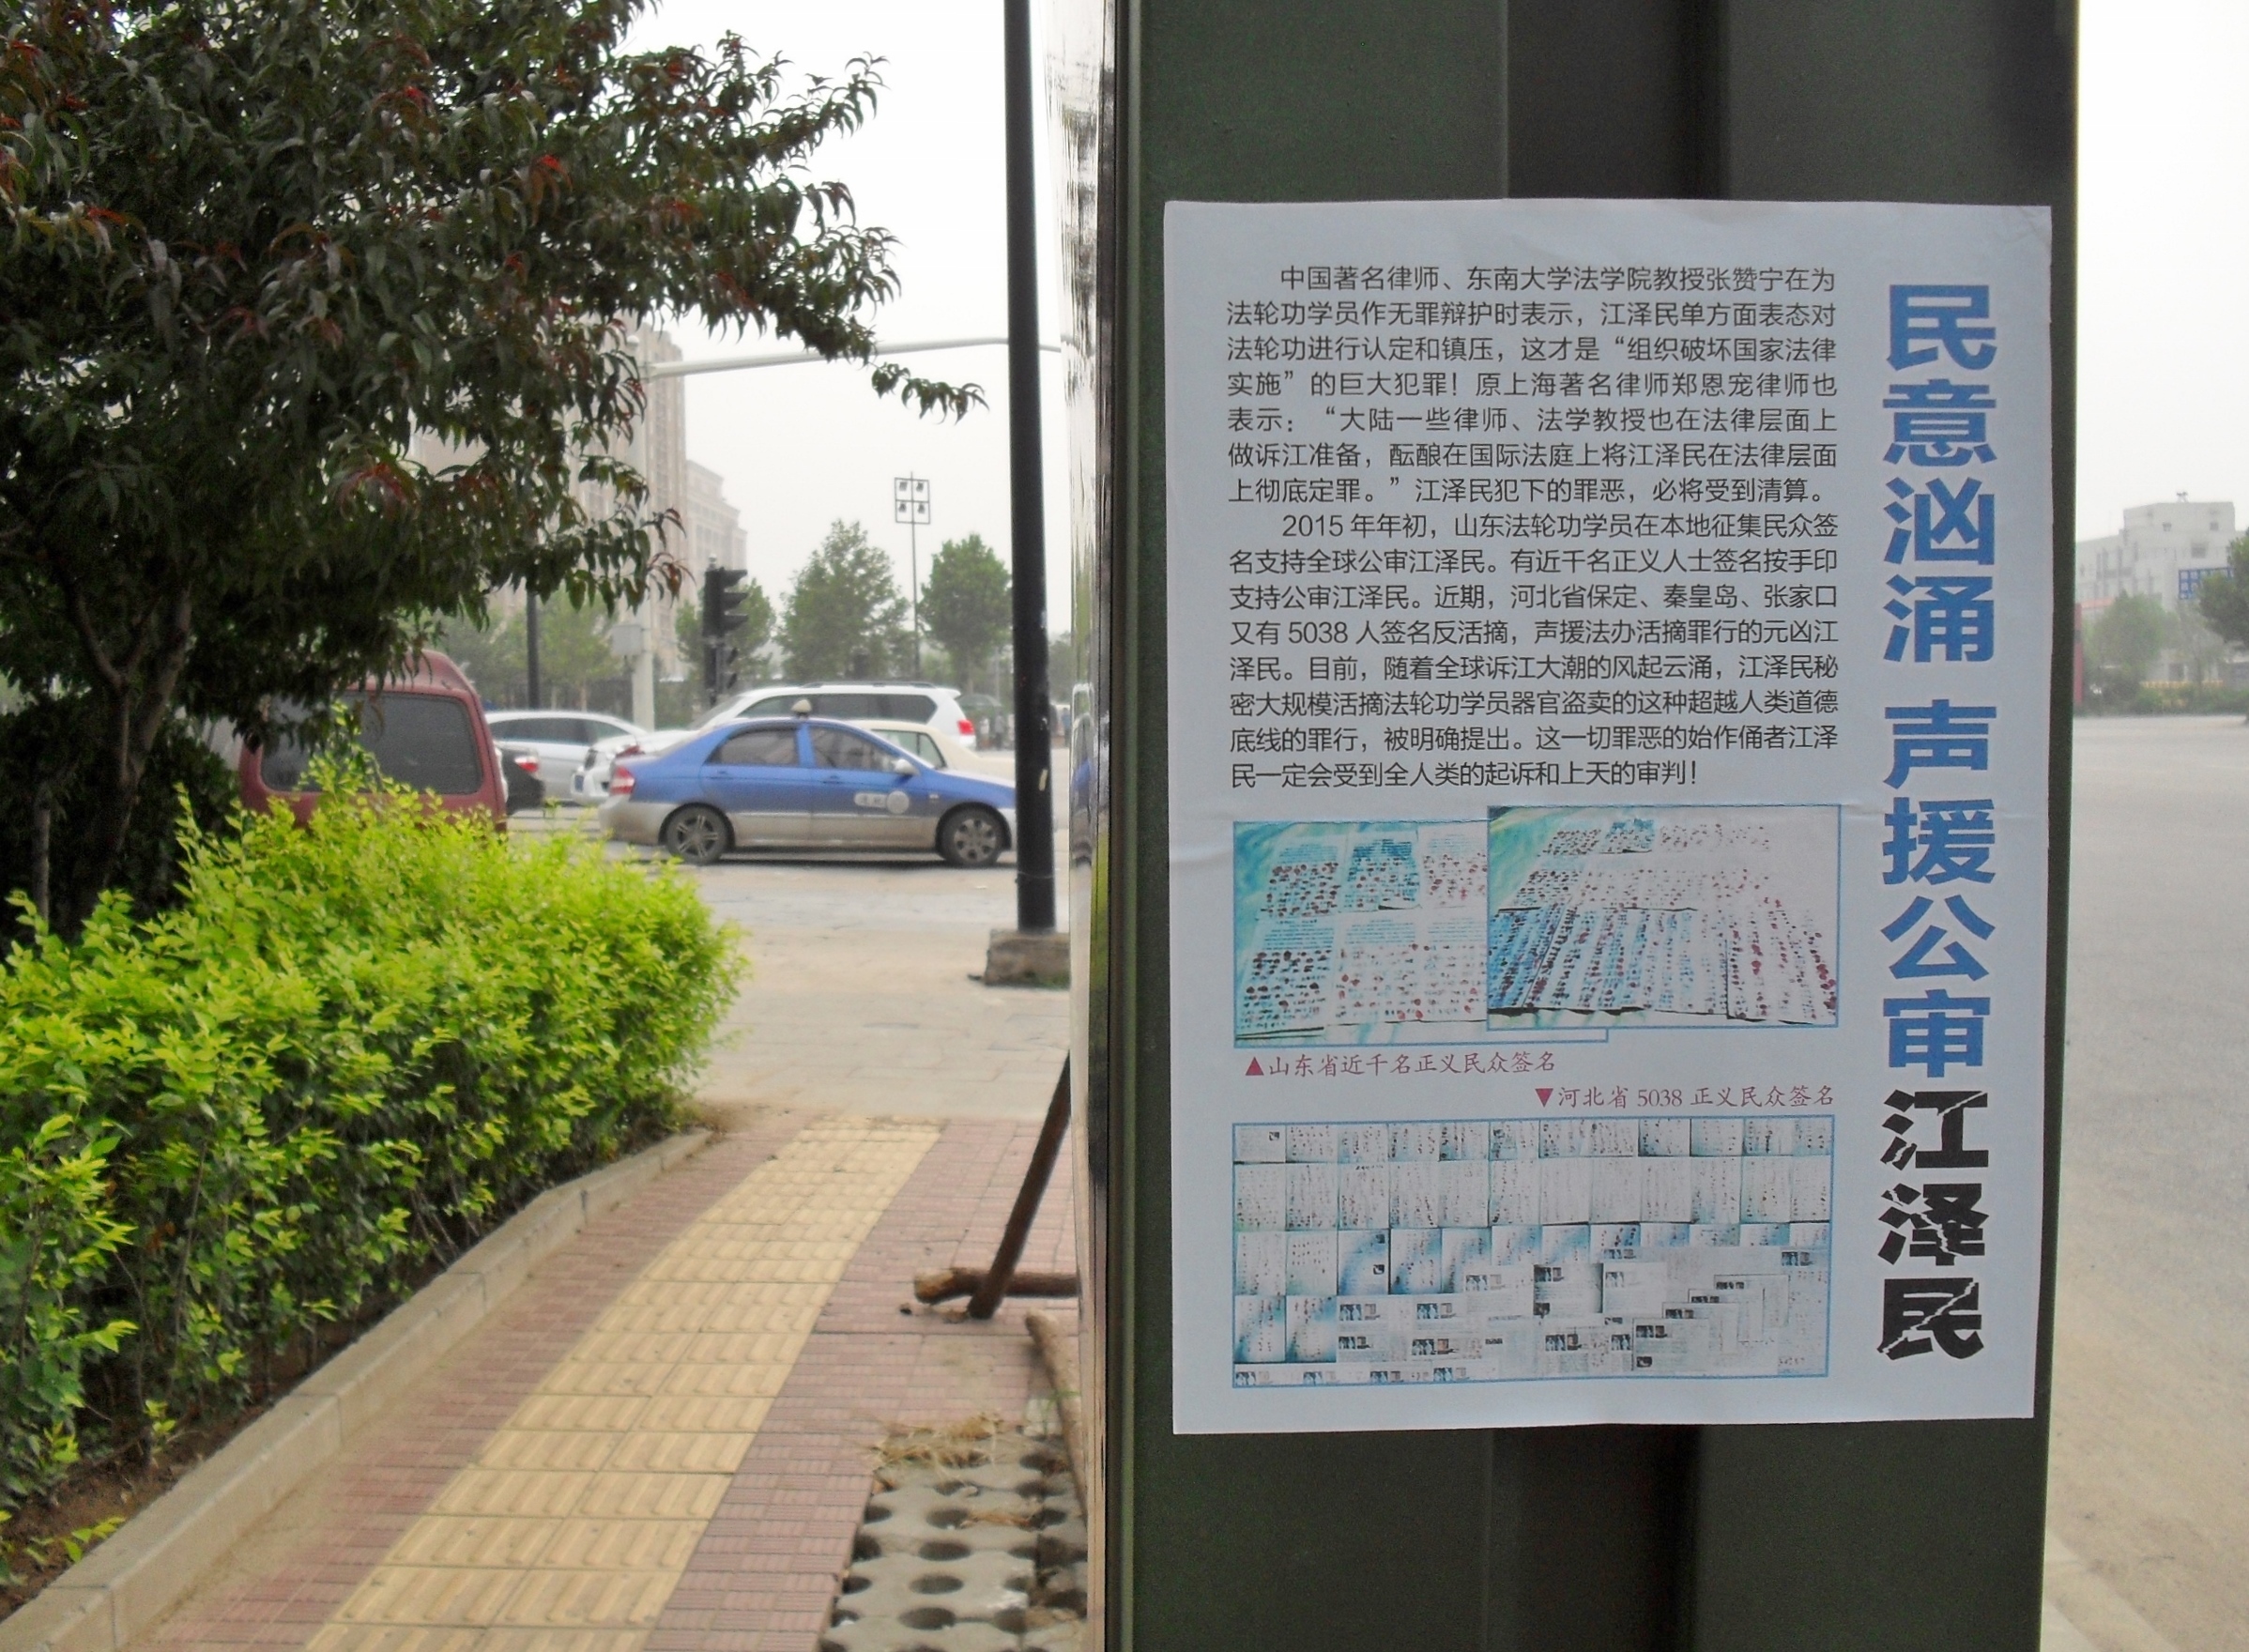 民意汹涌 声援公审江泽民
中国著名律师、东南大学法学院教授张赞宁在为
法轮功学员作无罪辩护时表示，江泽民单方面表态对
法轮功进行认定和镇压，这才是“组织破坏国家法律
实施”的巨大犯罪！原上海著名律师郑恩宠律师也
表示：“大陆一些律师、法学教授也在法律层面上
做诉江准备，酝酿在国际法庭上将江泽民在法律层面
上彻底定罪。”江泽民犯下的罪恶，必将受到清算。
2015 年年初，山东法轮功学员在本地征集民众签
名支持全球公审江泽民。有近千名正义人士签名按手印
支持公审江泽民。近期，河北省保定、秦皇岛、张家口
又有 5038 人签名反活摘，声援法办活摘罪行的元凶江
泽民。目前，随着全球诉江大潮的风起云涌，江泽民秘
密大规模活摘法轮功学员器官盗卖的这种超越人类道德
底线的罪行，被明确提出。这一切罪恶的始作俑者江泽
民一定会受到全人类的起诉和上天的审判！
▲山东省近千名正义民众签名
▼河北省 5038 正义民众签名